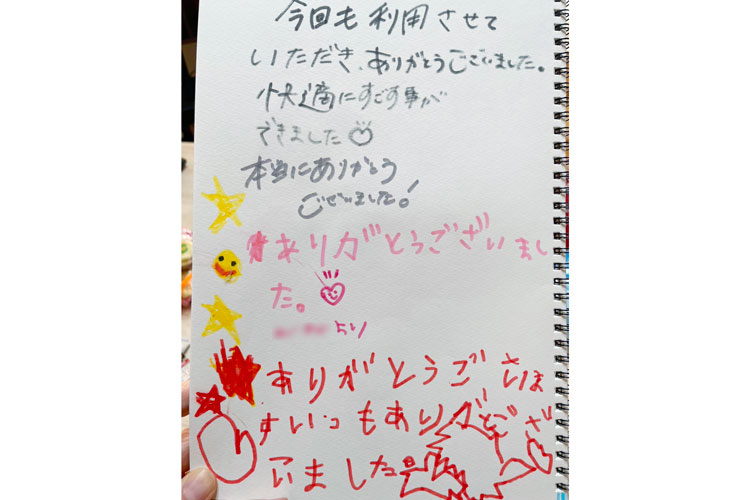 今回も利用させて
いただき、ありがとうございました。
快適にすごす事が
できました
本当にありがとう
ございました!
ありがとうございまし
た。
より
ありがとうごさいま
すいつもありがとござ
いました